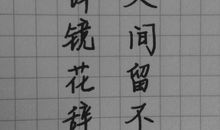 人间留不
辞镜花辞